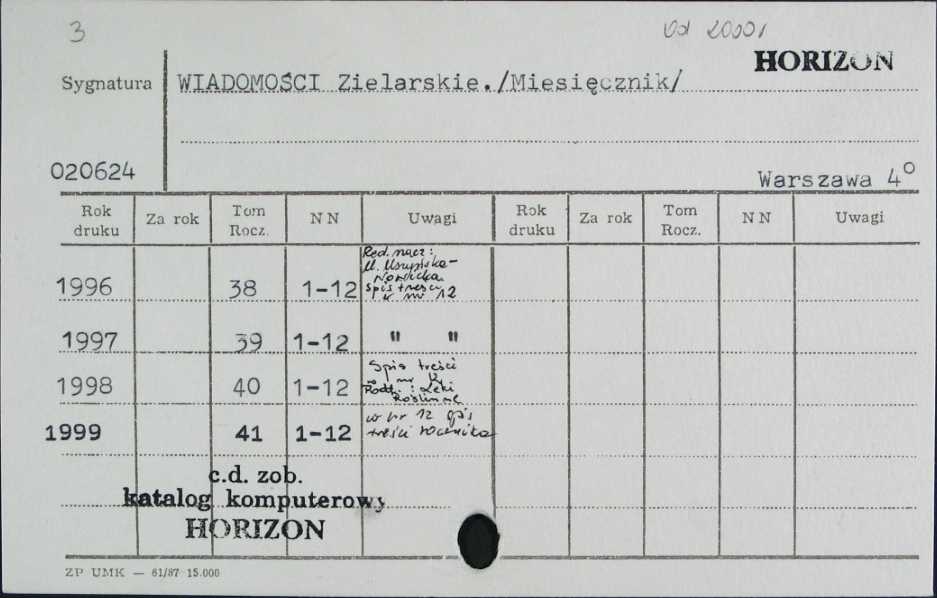 3
od 2000r
HORIZON
Sygnatura WIADOMOŚCI Zielarskie./Miesięcznik/
020624
Warszawa 4°
Rok druku Za rok Tom Rocz. NN Uwagi Rok druku Za rok Tom Rocz. NN Uwagi
Red. nacz:
spis treści
w nr 12
1996 38 1-12
1997 39 1-12 " "
Spis treści
w nr 12
1998 40 1-12
Leki
Roślinne
w nr 12 spis
1999 41 1-12 treści rocznika
c.d. zob.
katalog komputerowy
HORIZON
ZP UMK — 61/87 15.000